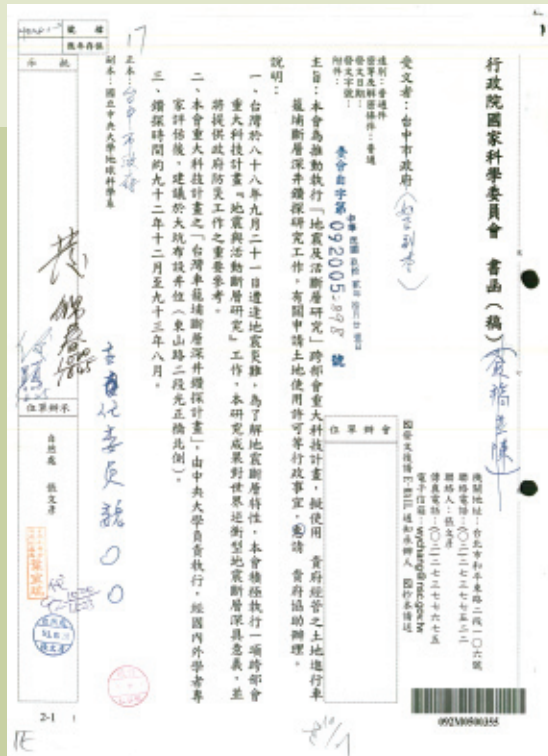 行政院國家科學委員會 書函(稿)
機關地址：台北市和平東路二段一○六號
聯絡電話：(○二)二七三七七五二二
聯絡人：張文彥
傳真電話：(○二)二七三七七六七五
電子信箱：wychang@nsc.gov.tw
受文者：台中市政府
速別：普通件
密等及解密條件：普通
發文日期：
發文字號：
附件：
臺會自字第 0920052898 號
主旨：本會為推動執行「地震及活斷層研究」跨部會重大科技計畫，擬使用 貴府經營之土地進行車
籠埔斷層深井鑽探研究工作，有關申請土地使用許可等行政事宜，惠請 貴府協助辦理。
說明：
一、台灣於八十八年九月二十一日遭逢地震災難，為了解地震斷層特性，本會積極執行一項跨部會
重大科技計畫「地震與活動斷層研究」工作，本研究成果對世界逆衝型地震斷層深具意義，並
將提供政府防災工作之重要參考。
二、本會重大科技計畫之「台灣車籠埔斷層深井鑽探計畫」，由中央大學負責執行，經國內外學者專
家評估後，建議於大坑布設井位（東山路二段光正橋北側）。
三、鑽探時間約九十二年十二月至九十三年八月。
正本：台中市政府
副本：國立中央大學地球科學系
檔號
保存年限
批示
會辦單位
承辦單位
自然處 張文彥
092M0500355
2-1
17